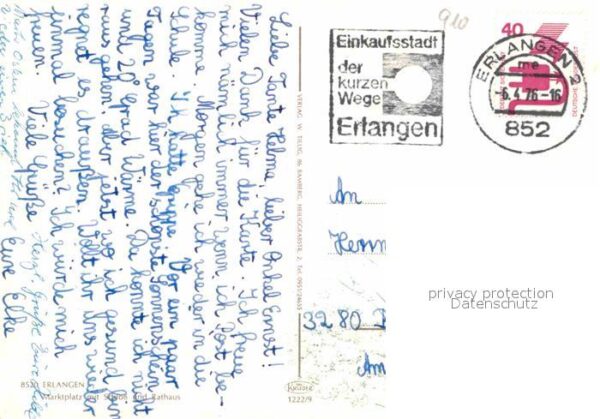 Liebe Tante Helma, lieber Onkel Ernst!
Vielen Dank für die Karte. Ich freue
mich nämlich immer wenn ich Post be-
komme. Morgen gehe ich wieder in die
Schule. Ich hatte Grippe. Vor ein paar
Tagen war hier der schönste Sonnenschein
und 20 Grad Wärme. Da konnte ich nicht
raus gehen, aber jetzt wo ich gesund bin
regnet es draußen. Wollt ihr uns wieder
einmal besuchen? Ich würde mich
freuen. Viele Grüße Eure Elke
Grüße Eure
VERLAG W. TILLIG, 86 BAMBERG, HEILIGGRABSTR. 2, Tel. 0951/24655
8520 ERLANGEN
Marktplatz mit Schloß und Rathaus
Krüger
1222/9
910
Einkaufsstadt
der
kurzen
Wege
Erlangen
40
ERLANGEN 2
me
-6.4.76-16
852
An
Herrn
3280
Am
privacy protection
Datenschutz